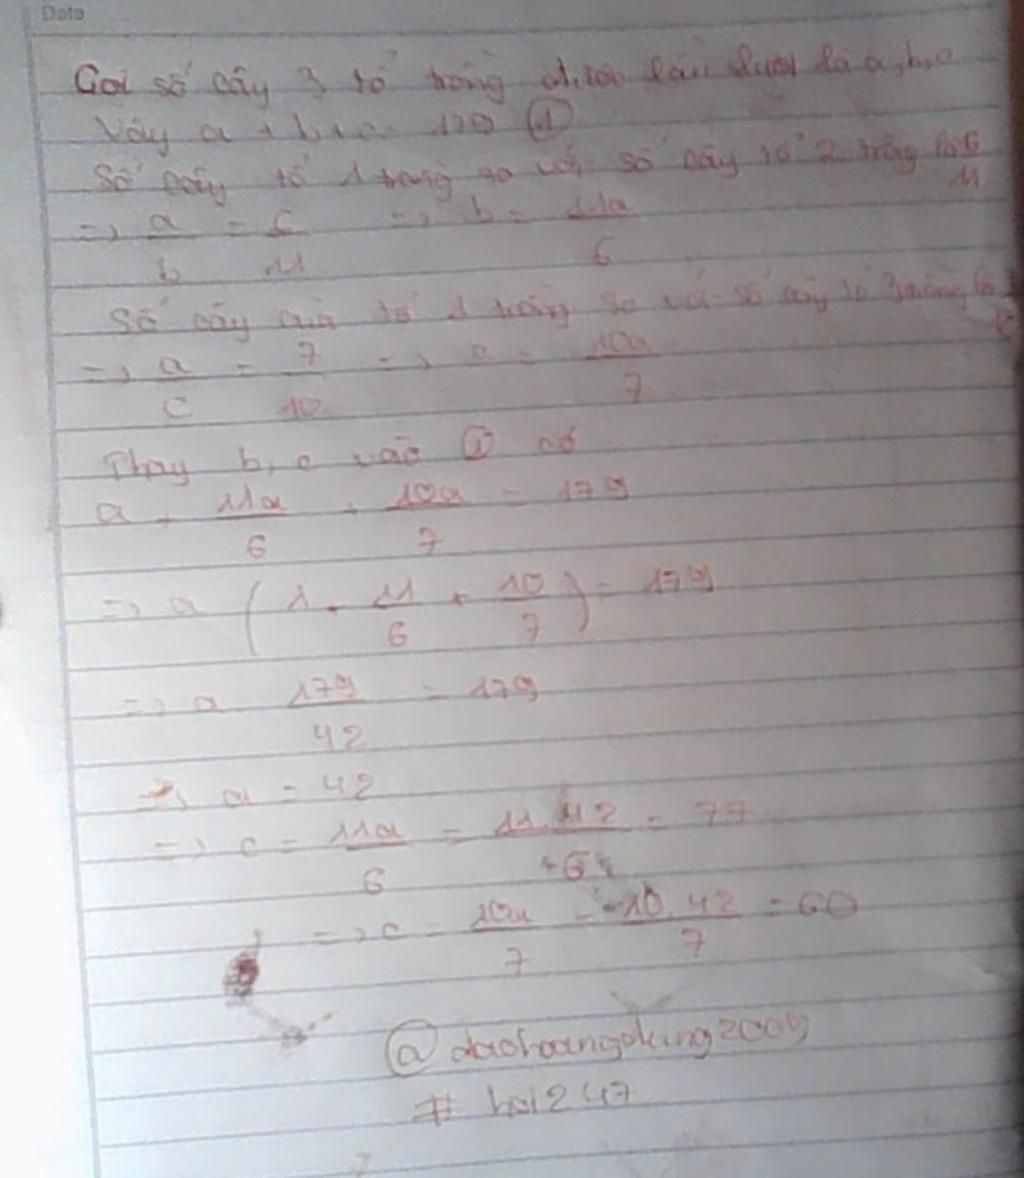 Date
Gọi số cây 3 tổ trồng được lần lượt là a, b, c
Vậy a + b + c = 179 (1)
Số cây tổ 1 trồng so với số cây tổ 2 trồng là 6/11
=> a/b = 6/11 => b = 11a/6
Số cây của tổ 1 trồng so với số cây tổ 3 trồng là
=> a/c = 7/10 => c = 10a/7
Thay b, c vào (1) có
a + 11a/6 + 10a/7 = 179
=> a (1 + 11/6 + 10/7) = 179
=> a 179/42 = 179
=> a = 42
=> c = 11a/6 = 11.42/6 = 77
=> c = 10a/7 = 10.42/7 = 60
@daohoangdung2009
# hoi247